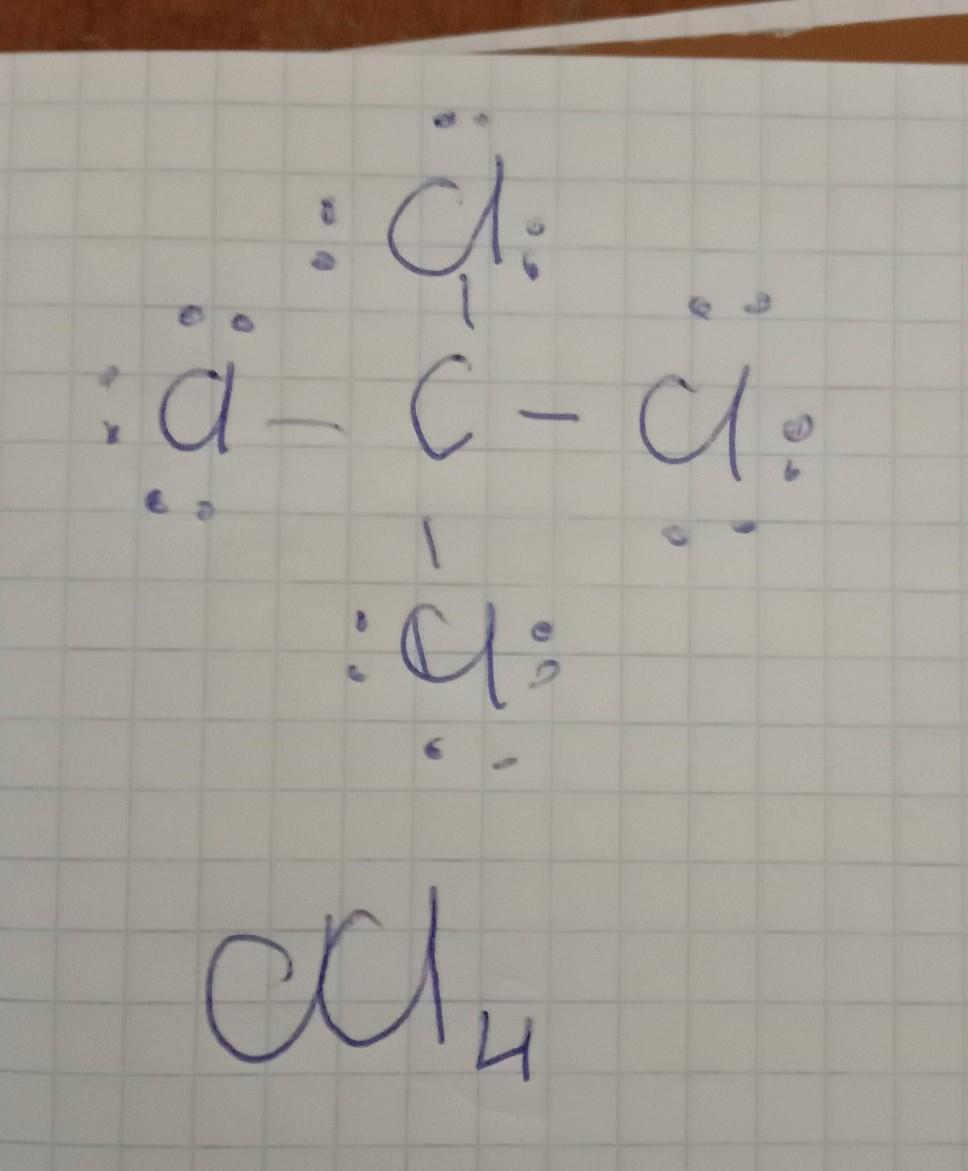 Cl
Cl — C — Cl
Cl
CCl4